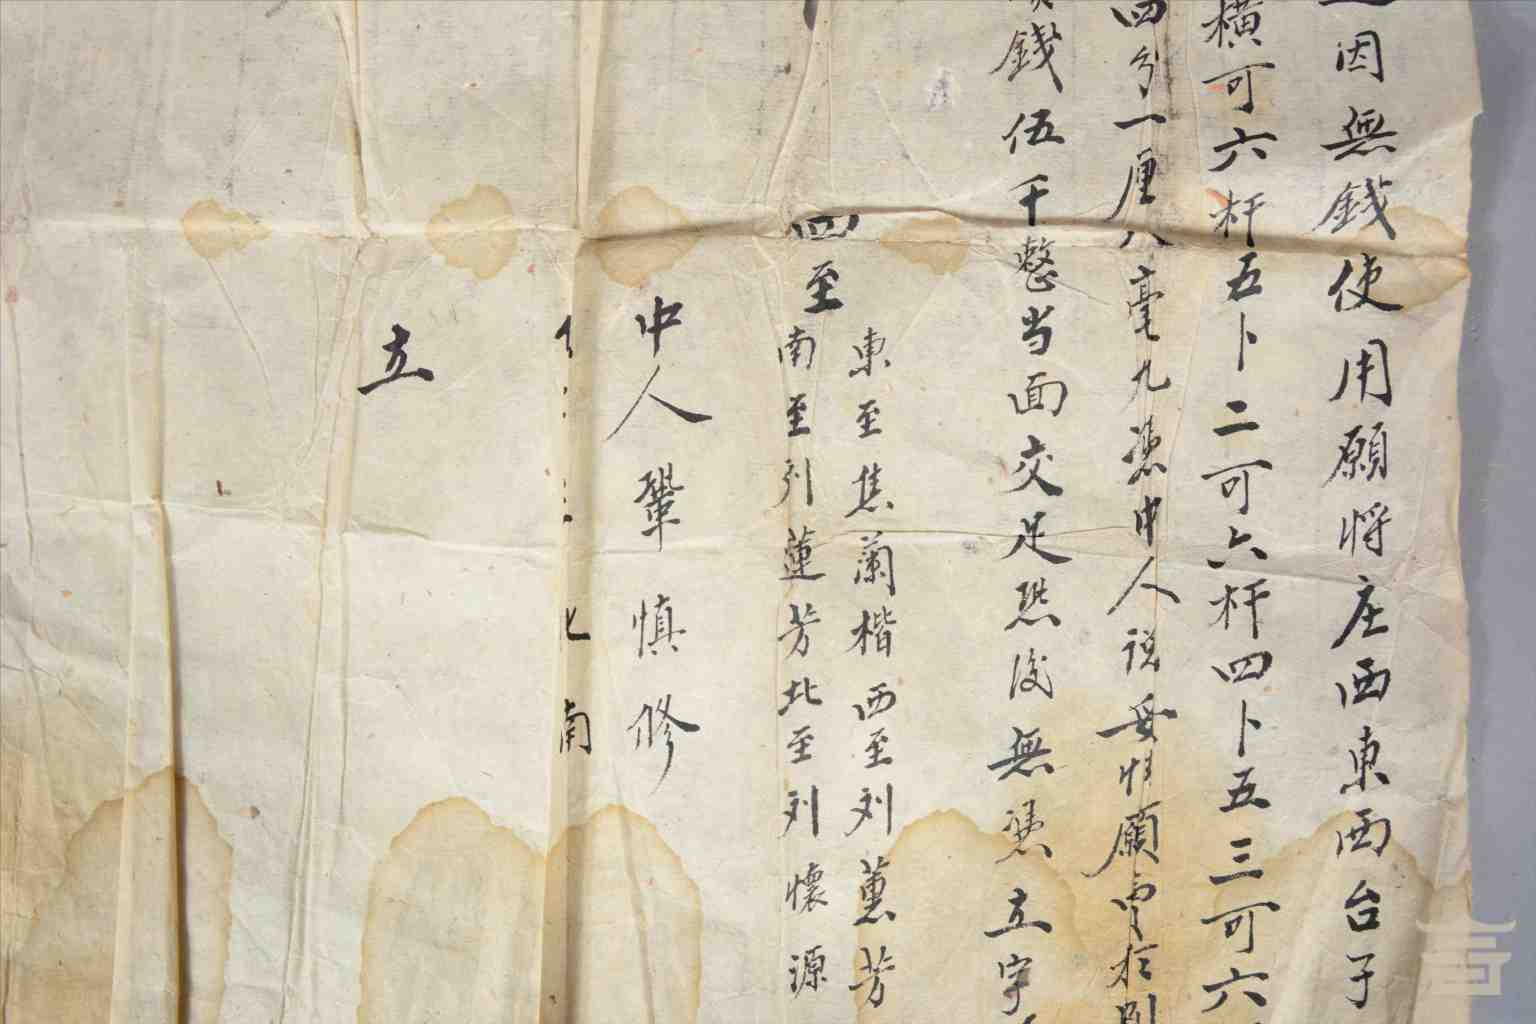 因無錢使用願將庄西東西台子
橫可六杆五卜二可六杆四卜五三可六
四分一厘八毫九憑中人說妥情願賣于
錢伍千整当面交足恐後無憑立字
四至
東至焦蘭楷西至刘薰芳
南至刘蓮芳北至刘懷源
中人鞏慎修
南
立